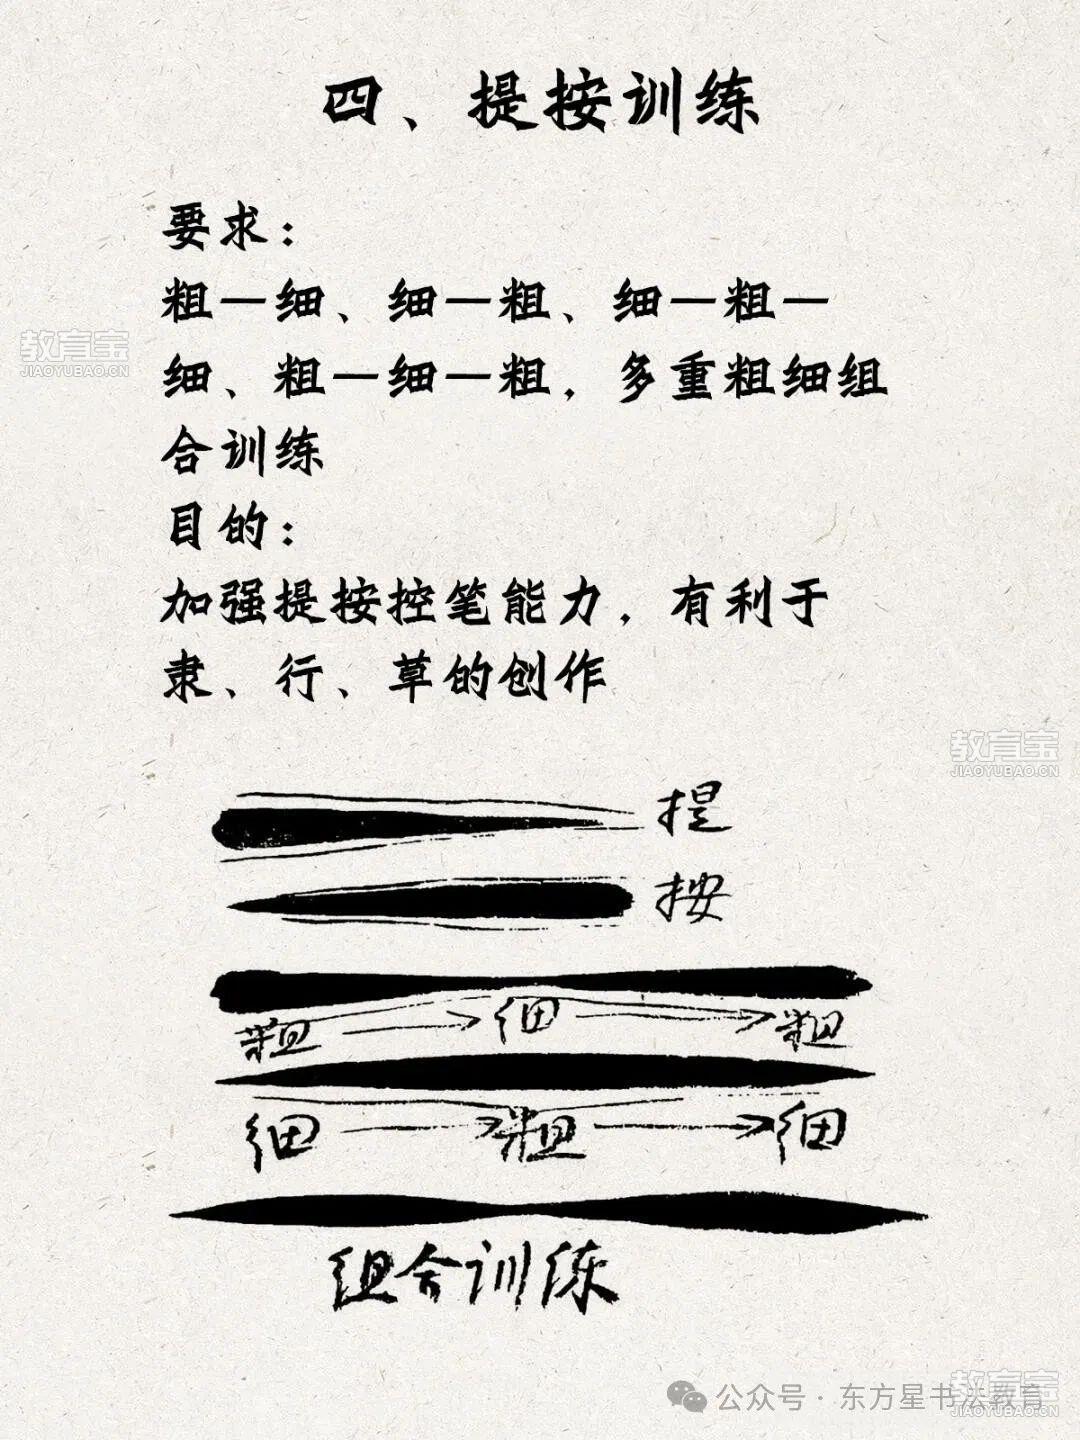 四、提按训练
要求：
粗一细、细一粗、细一粗一
细、粗一细一粗，多重粗细组
合训练
目的：
加强提按控笔能力，有利于
隶、行、草的创作
教育宝
JIAOYUBAO.CN
教育宝
JIAOYUBAO.CN
提
按
粗 细 粗
细 粗 细
组合训练
公众号·东方星书法教育
教育宝
JIAOYUBAO.CN